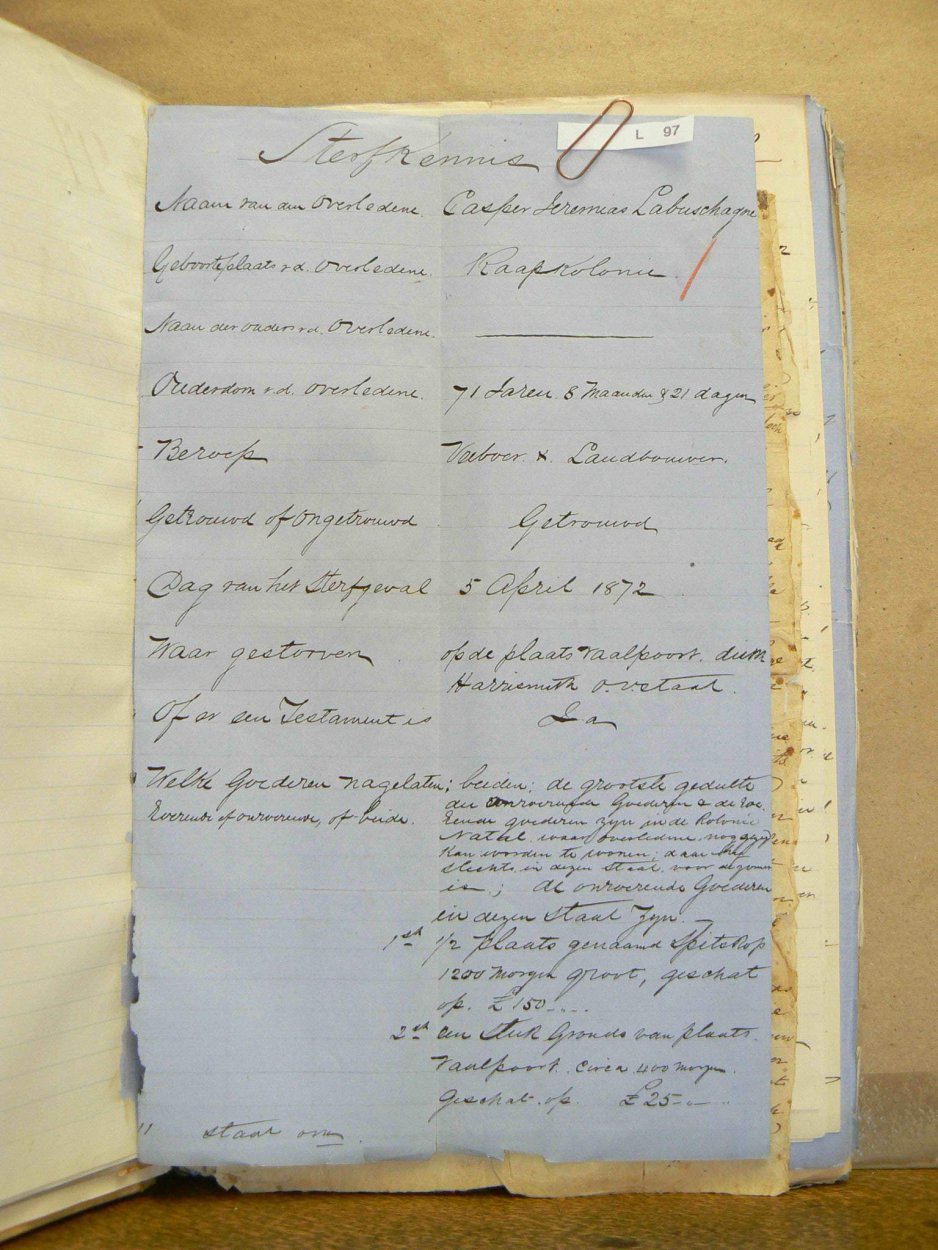 L 97
Sterfkennis
Naam van den Overledene. Casper Jeremias Labuschagne
Geboorteplaats v.d. Overledene. Kaapkolonie.
Naam der ouders v.d. Overledene.
Ouderdom v.d. Overledene. 71 Jaren 8 Maanden & 21 dagen
Beroep Veeboer & Landbouwer.
Getrouwd of Ongetrouwd Getrouwd
Dag van het Sterfgeval 5 April 1872
Waar gestorven op de plaats Vaalpoort. distr
Harrismith O.V. Staat.
Of er een Testament is Ja
Welke Goederen nagelaten; beiden; de grootste gedeelte
Roerende of onroerende, of beide. der onroerende Goederen & de Roe-
rende goederen zyn in de Kolonie
Natal waar overledene nog gezegd
kan worden te wonen; daar hy
slechts in dezen Staat voor de zomer
is; de onroerende Goederen
in dezen Staat Zyn. —
1st 1/2 plaats genaamd Spitskop
1200 Morgen groot, geschat
op. £150 - . . .
2st een Stuk Gronds van plaats
Vaalpoort. Circa 400 morgen.
geschat op. £25 - . —
staat om